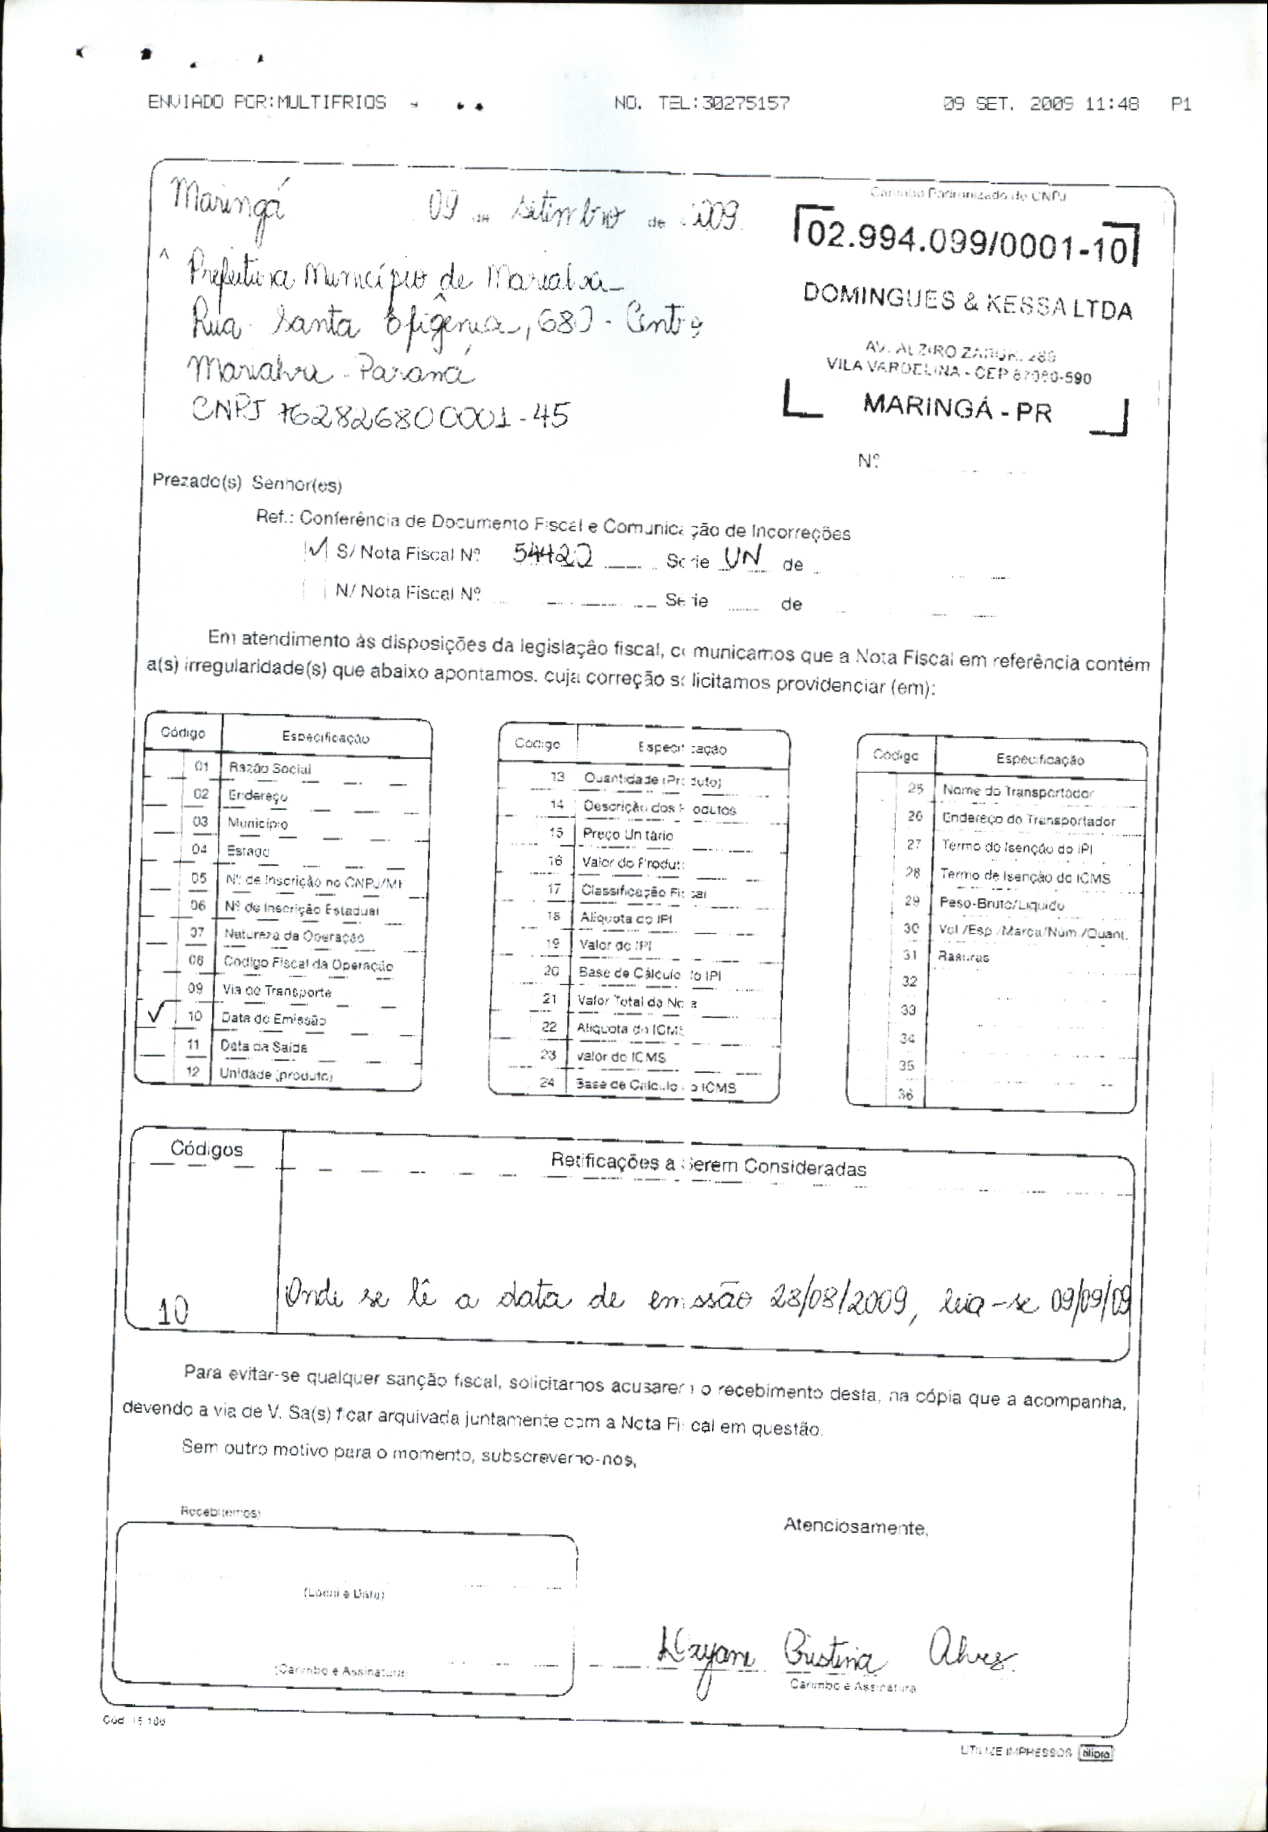 ENVIADO POR:MULTIFRIOS NO. TEL:30275157 09 SET. 2009 11:48 P1
Carimbo Padronizado do CNPJ
Maringá 09 de setembro de 2009
02.994.099/0001-10
À Prefeitura Município de Marialva
DOMINGUES & KESSA LTDA
Rua Santa Efigênia, 680 - Centro
AV. ALZIRO ZARUR, 286
VILA VARDELINA - CEP 87080-590
Marialva - Paraná
MARINGÁ - PR
CNPJ 76282680 0001-45
Nº
Prezado(s) Senhor(es)
Ref.: Conferência de Documento Fiscal e Comunicação de Incorreções
✓ S/ Nota Fiscal Nº 54420 Série UN de
N/ Nota Fiscal Nº Série de
Em atendimento às disposições da legislação fiscal, comunicamos que a Nota Fiscal em referência contém
a(s) irregularidade(s) que abaixo apontamos, cuja correção solicitamos providenciar (em):
Código Especificação
01 Razão Social
02 Endereço
03 Município
04 Estado
05 Nº de Inscrição no CNPJ/MF
06 Nº de Inscrição Estadual
07 Natureza da Operação
08 Código Fiscal da Operação
09 Via de Transporte
✓ 10 Data de Emissão
11 Data da Saída
12 Unidade (produto)
Código Especificação
13 Quantidade (Produto)
14 Descrição dos Produtos
15 Preço Unitário
16 Valor do Produto
17 Classificação Fiscal
18 Alíquota do IPI
19 Valor do IPI
20 Base de Cálculo do IPI
21 Valor Total da Nota
22 Alíquota do ICMS
23 Valor do ICMS
24 Base de Cálculo do ICMS
Código Especificação
25 Nome do Transportador
26 Endereço do Transportador
27 Termo de Isenção do IPI
28 Termo de Isenção do ICMS
29 Peso-Bruto/Líquido
30 Vol./Esp./Marca/Num./Quant.
31 Rasuras
32
33
34
35
36
Códigos Retificações a Serem Consideradas
10 Onde se lê a data de emissão 28/08/2009, leia-se 09/09/09
Para evitar-se qualquer sanção fiscal, solicitamos acusarem o recebimento desta, na cópia que a acompanha,
devendo a via de V. Sa(s) ficar arquivada juntamente com a Nota Fiscal em questão.
Sem outro motivo para o momento, subscrevemo-nos,
Recebi(emos)
Atenciosamente,
(Local e Data)
Cristina Alves
(Carimbo e Assinatura)
Carimbo e Assinatura
UTILIZE IMPRESSOS tilipra